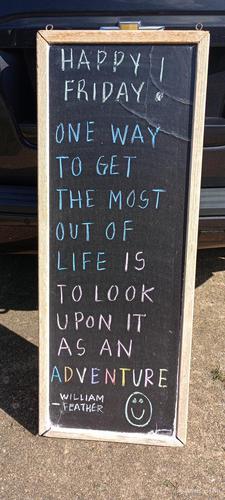 HAPPY
FRIDAY!
ONE WAY
TO GET
THE MOST
OUT OF
LIFE IS
TO LOOK
UPON IT
AS AN
ADVENTURE
-WILLIAM
FEATHER